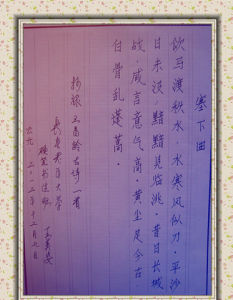 塞下曲
饮马渡秋水,水寒风似刀。平沙
日未没,黯黯见临洮。昔日长城
战,咸言意气高。黄尘足今古
白骨乱蓬蒿。
抄录王昌龄古诗一首
长春老年大学
硬笔书法班
二〇一二年十二月七日